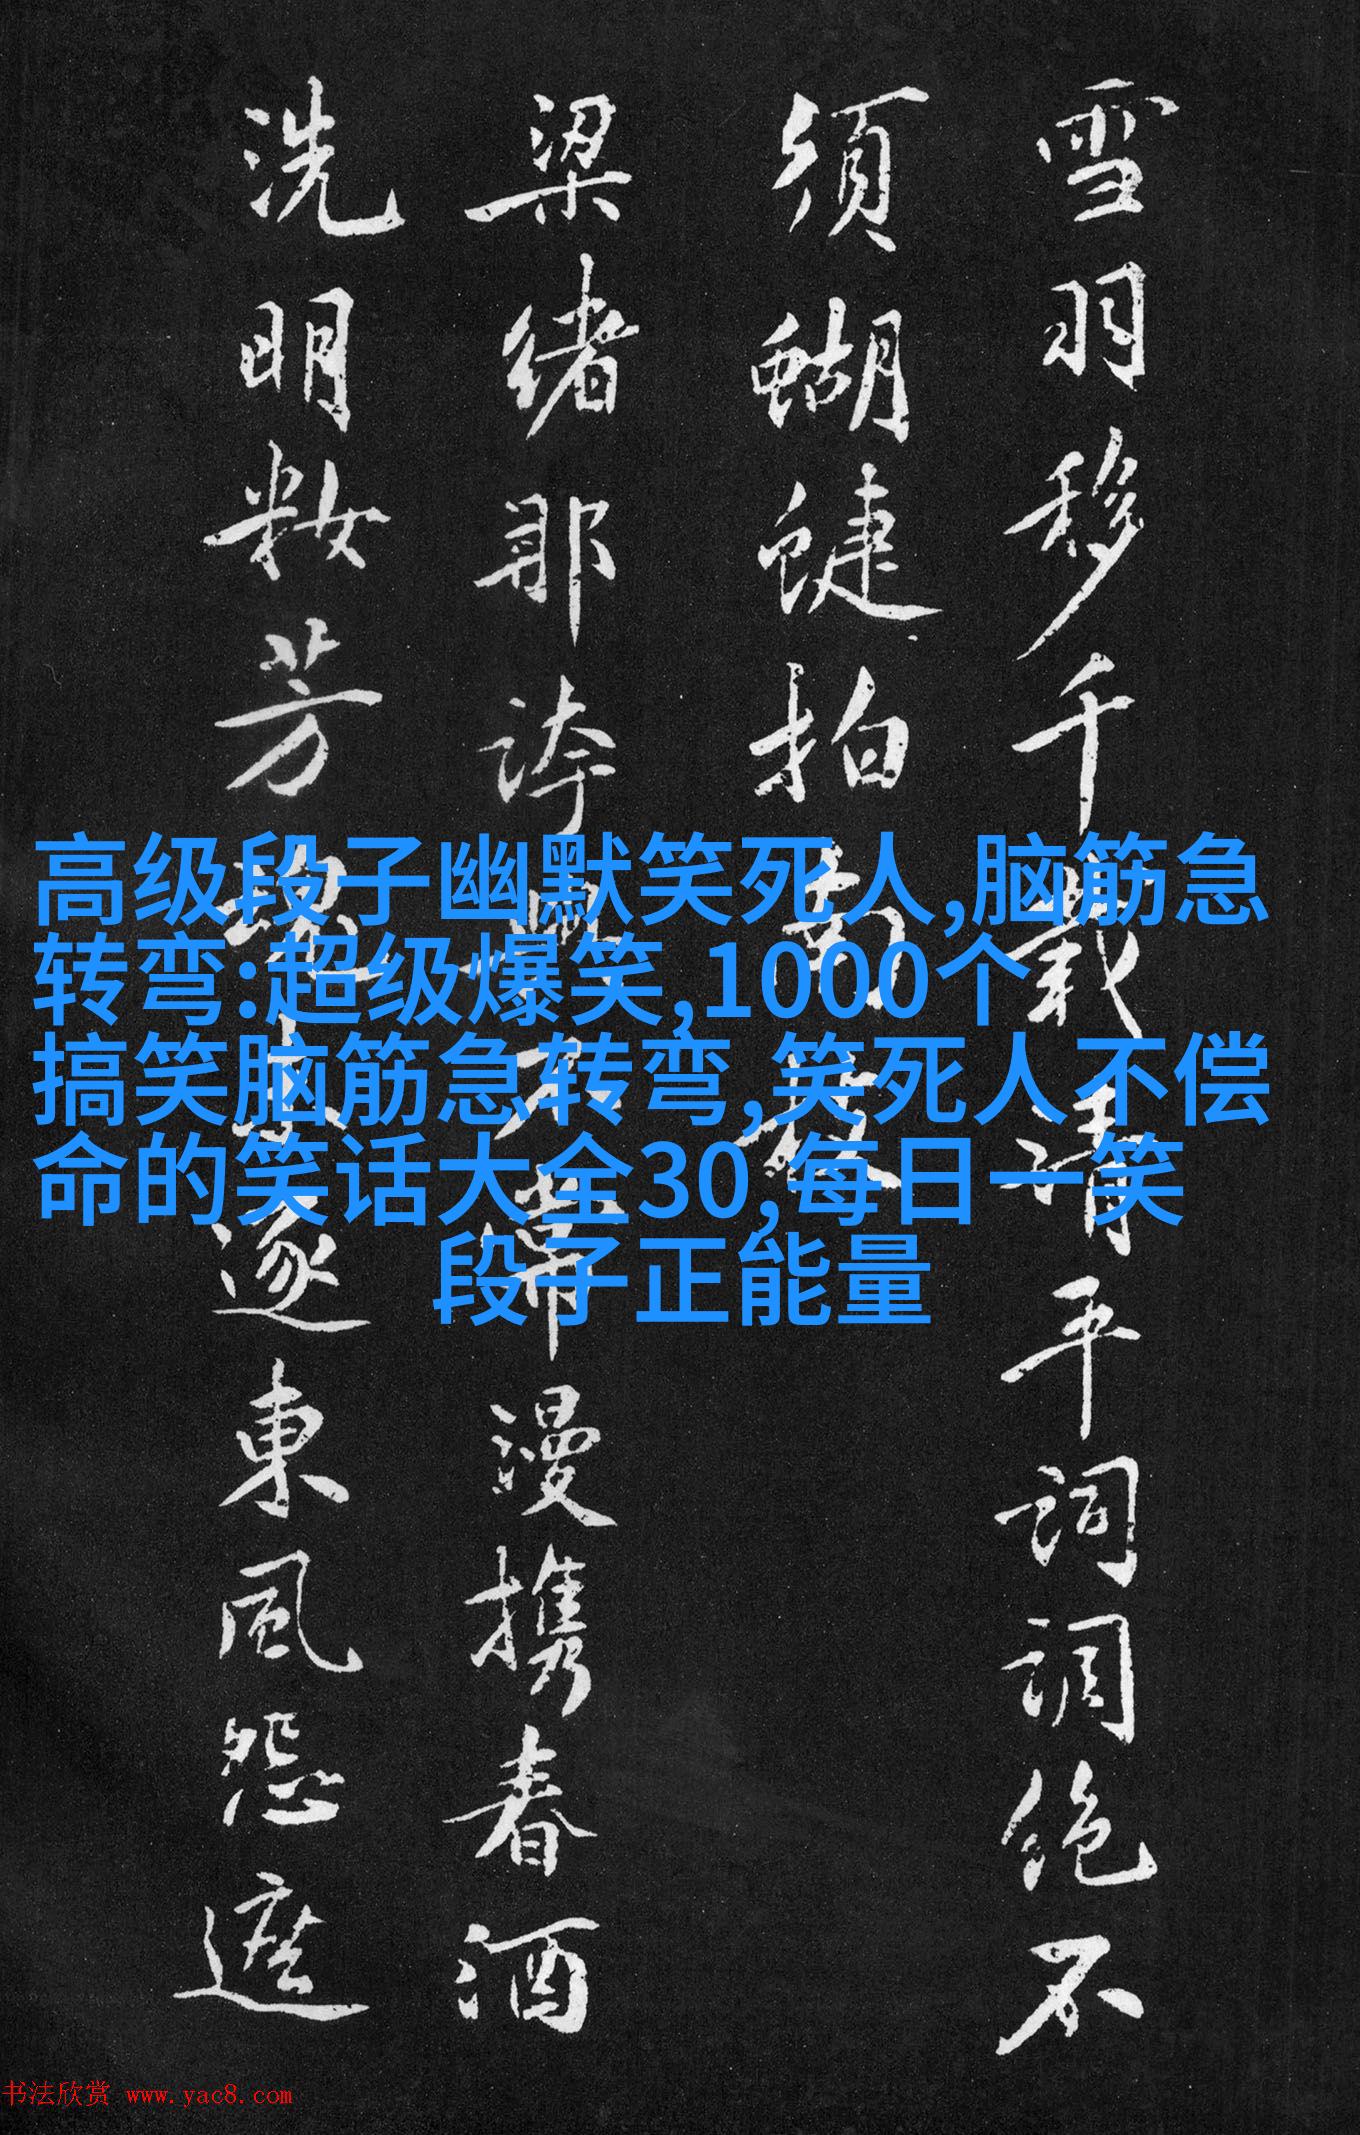 雪羽移千載清平詞調絶不
須蝴蜨拍南
梁緒那誇不漫携春酒
洗明粧芳逐東風怨遮
高级段子幽默笑死人,脑筋急
转弯:超级爆笑,1000个
搞笑脑筋急转弯,笑死人不偿
命的笑话大全30,每日一笑
段子正能量
书法欣赏 www.yac8.com